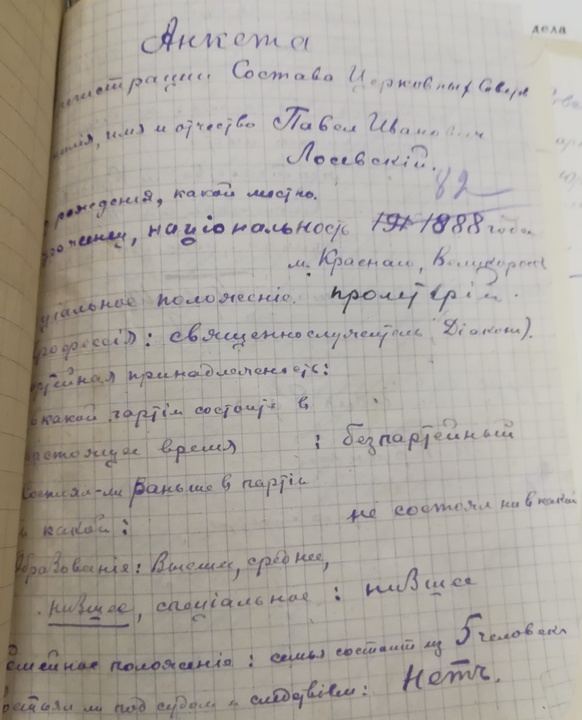 дела
Анкета
истрации Состава Церковных Совета
илія, имя и отчество Павел Иванович
Лосевскій.
82
рожденія, какой местно.
роженец, національность 191 1888 года
м. Красная,
ціальное положеніе. пролетарій.
профессія: священнослужитель (Діакон).
ртійная принадлежность:
какой партіи состоите в
настоящее время : безпартейный
Состоял-ли раньше в партіи
и какой: не состоял ни в какой
бразованія: Высшее, среднее,
низшее, спеціальное : низшее
емейное положеніе : семья состоит из 5 человек
остояли ли под судом и следствіем: Нетъ.